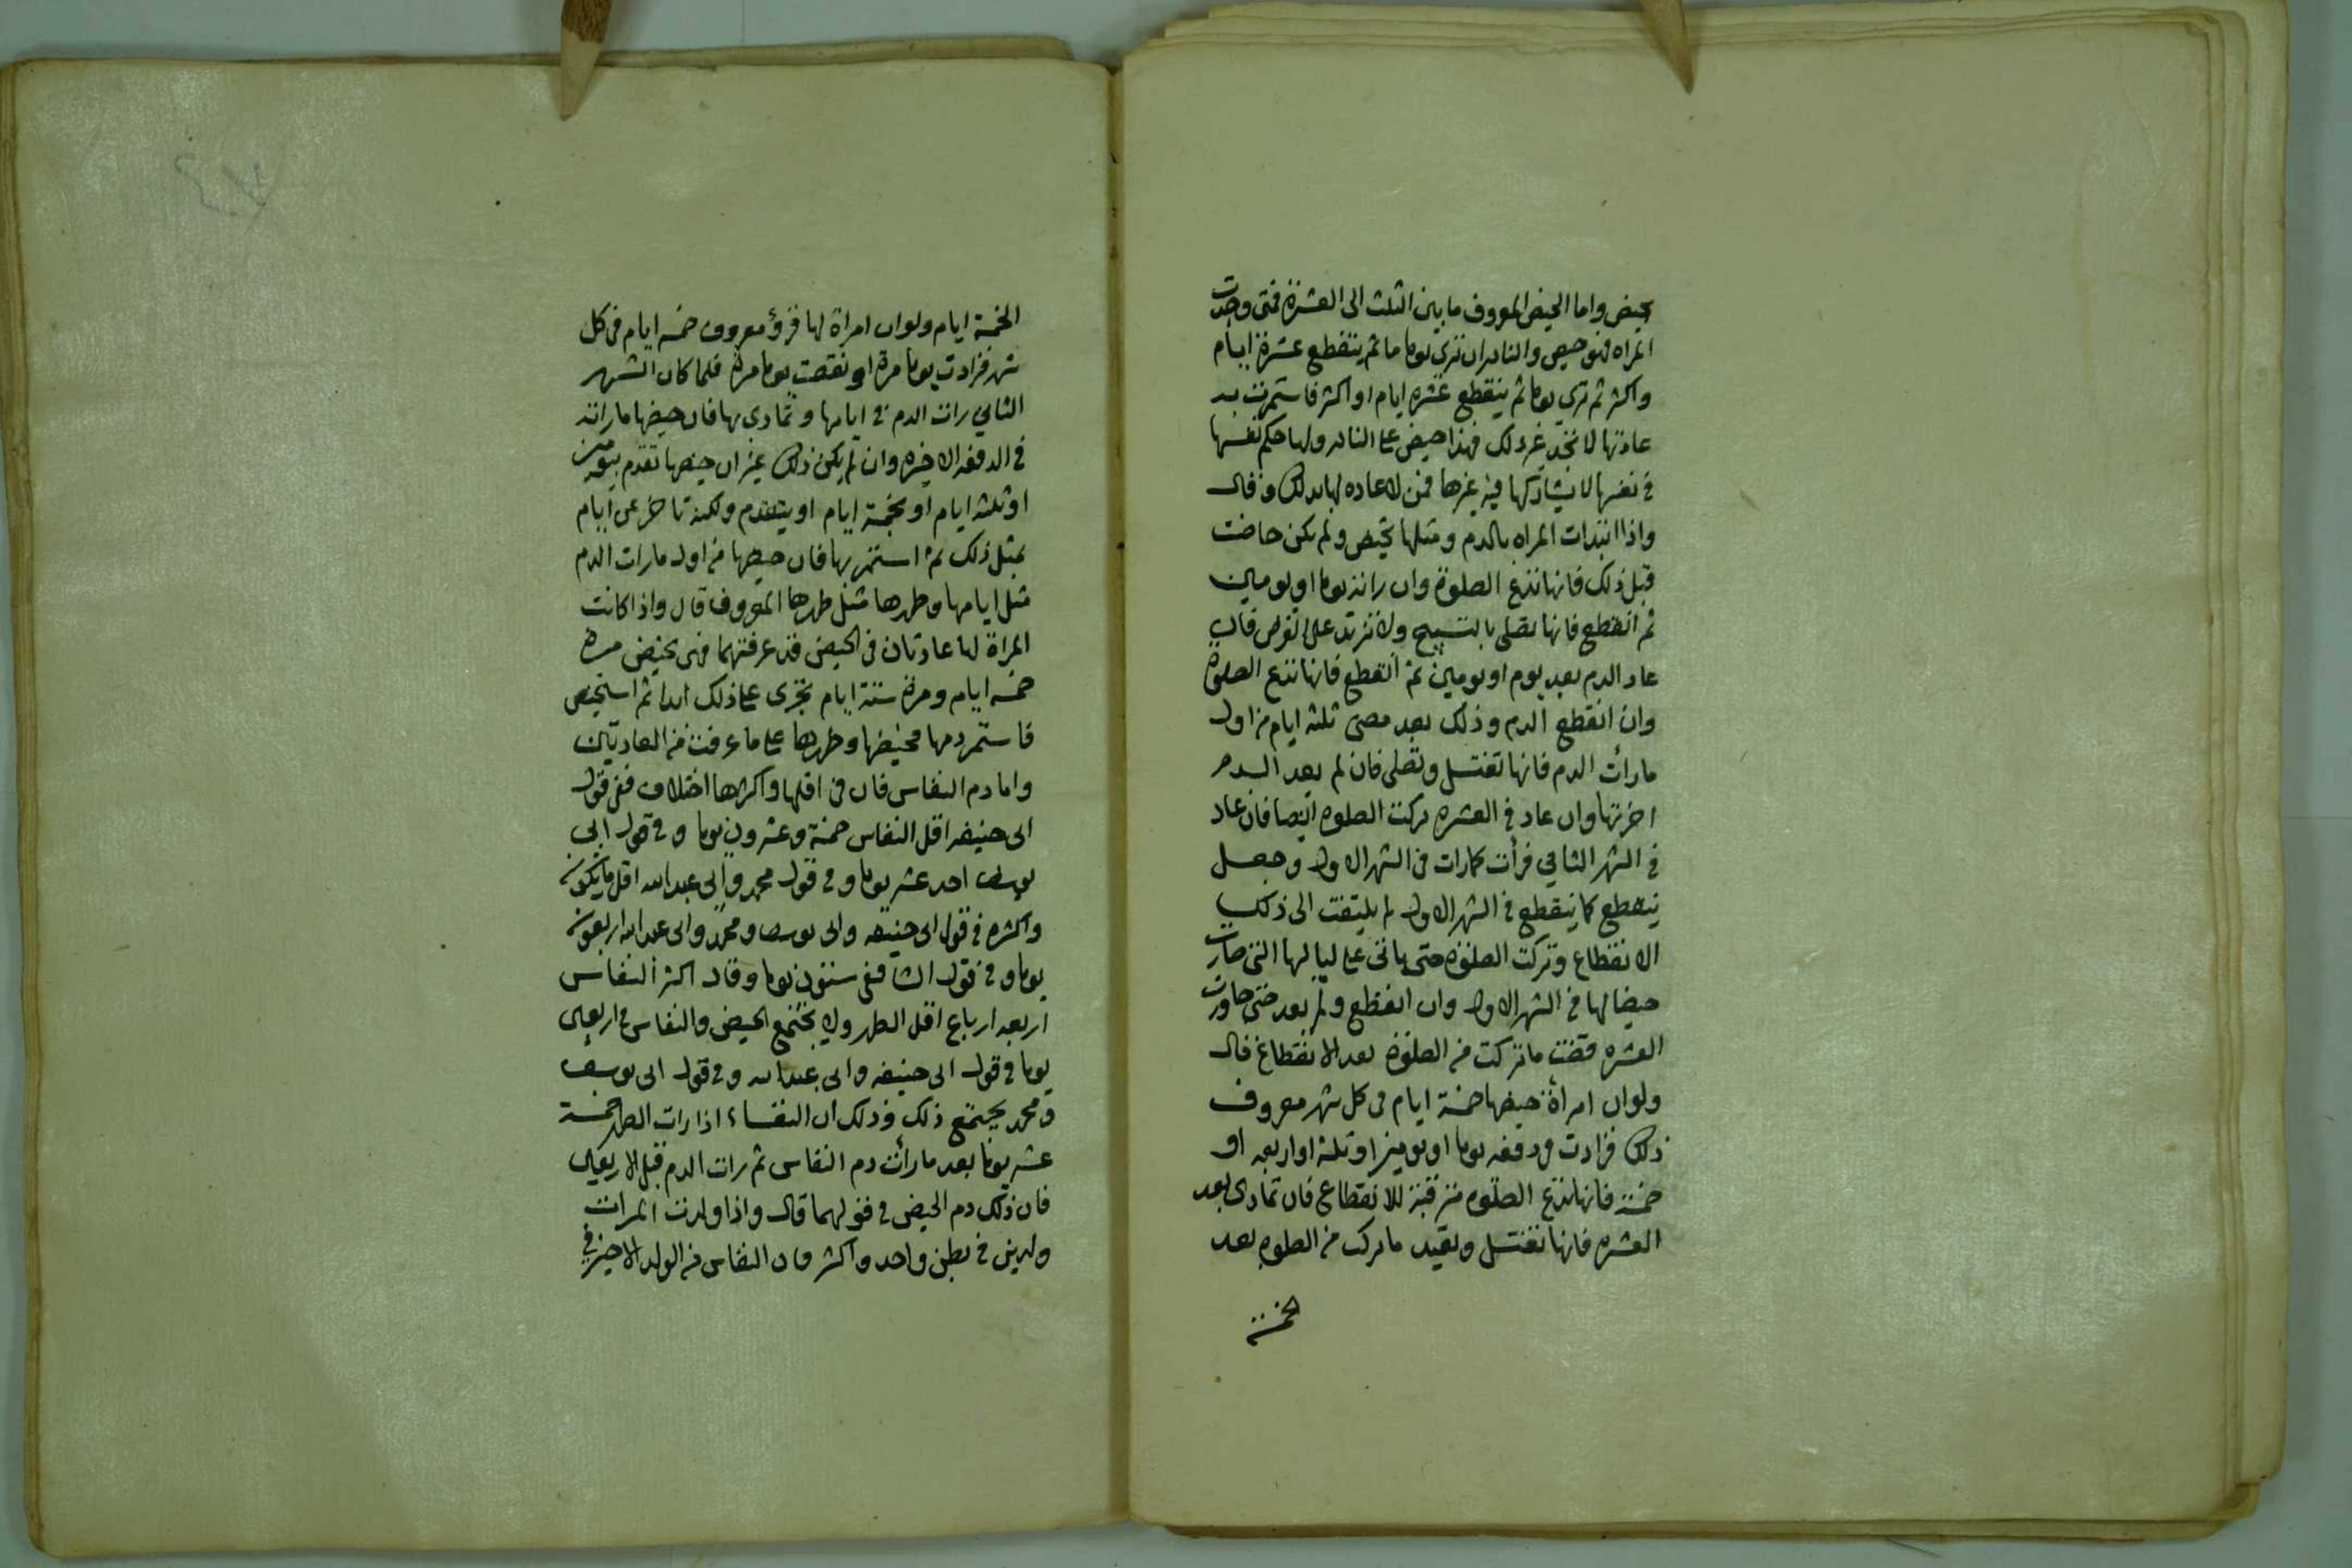 بحيض واما الحيض المعروف ما بين الثلث الى العشرة فمتى وجدت
المراه فهو حيض والنادر ان ترى يوما دما ثم ينقطع عشرة ايام
واكثر ثم ترى يوما ثم ينقطع عشره ايام او اكثر فاستمرت به
عادتها لا تجد غير ذلك فهذا حيض على النادر ولها حكم نفسها
في نفسها لا يشاركها فيه غيرها فمن لا عاده لها بذلك وقال
واذا ابتدات المراه بالدم ومثلها تحيض ولم تكن حاضت
قبل ذلك فانها تدع الصلوة وان راته يوما او يومين
ثم انقطع فانها تصلى ولا على فان
عاد الدم بعد يوم او يومين ثم انقطع فانها تدع الصلوة
وان انقطع الدم وذلك بعد مضى ثلثه ايام من اول
ما رأت الدم فانها تغتسل وتصلى فان لم يعد الدم
اجزتها وان عاد في العشره تركت الصلوه ايضا فان عاد
في الشهر الثاني فرأت كما رات في الشهر الاول وجعل
ينقطع كما ينقطع في الشهر الاول لم يلتفت الى ذلك
الانقطاع وتركت الصلوه حتى ياتى على ليالها التى صارت
حيضا لها في الشهر الاول وان انقطع ولم يعد حتى جاوزت
العشره قضت ما تركت من الصلوة بعد الانقطاع قال
ولو ان امرأة حيضها خمسة ايام في كل شهر معروف
ذلك فزادت في دفعه يوما او يومين او ثلثه او اربعه او
خمسة فانها تدع الصلوه مترقبة للانقطاع فان تمادى بعد
العشره فانها تغتسل وتعيد ما تركت من الصلوه بعد
الخمسة
الخمسة ايام ولو ان امراة لها قرؤ معروف خمسه ايام في كل
شهر فزادت يوما مرة او نقصت يوما مرة فلما كان الشهر
الثاني رات الدم في ايامها وتمادى بها فان حيضها ما راته
في الدفعه الاخيره وان لم يكن ذلك غير ان حيضها تقدم بيومين
او ثلثه ايام او بخمسة ايام او يتقدم ولكنه تاخر عن ايام
بمثل ذلك ثم استمر بها فان حيضها من اول ما رات الدم
مثل ايامها وطهرها مثل طهرها المعروف قال واذا كانت
المراة لها عادتان في الحيض قد عرفتهما فهى تحيض مره
خمسه ايام ومرة ستة ايام تجرى على ذلك ابدا ثم استحيض
فاستمر دمها فحيضها وطهرها على ما عرفت من العادتين
واما دم النفاس فان في اقلها واكثرها اختلاف ففى قول
ابى حنيفه اقل النفاس خمسة وعشرون يوما وفي قول ابى
يوسف احد عشر يوما وفي قول محمد وابى عبد الله اقل ما يكون
واكثره في قول ابى حنيفه وابى يوسف ومحمد وابى عبد الله اربعون
يوما وفي قول الشافعى ستون يوما وقال اكثر النفاس
اربعه ارباع اقل الطهر ولا يجتمع الحيض والنفاس في اربعين
يوما في قول ابى حنيفه وابى عبد الله وفي قول ابى يوسف
ومحمد يجتمع ذلك وذلك ان النفساء اذا رات الطهر خمسة
عشر يوما بعد ما رأت دم النفاس ثم رات الدم قبل الاربعين
فان ذلك دم الحيض في قولهما قال واذا ولدت المراة
ولدين في بطن واحد واكثر فان النفاس من الولد الاخير في